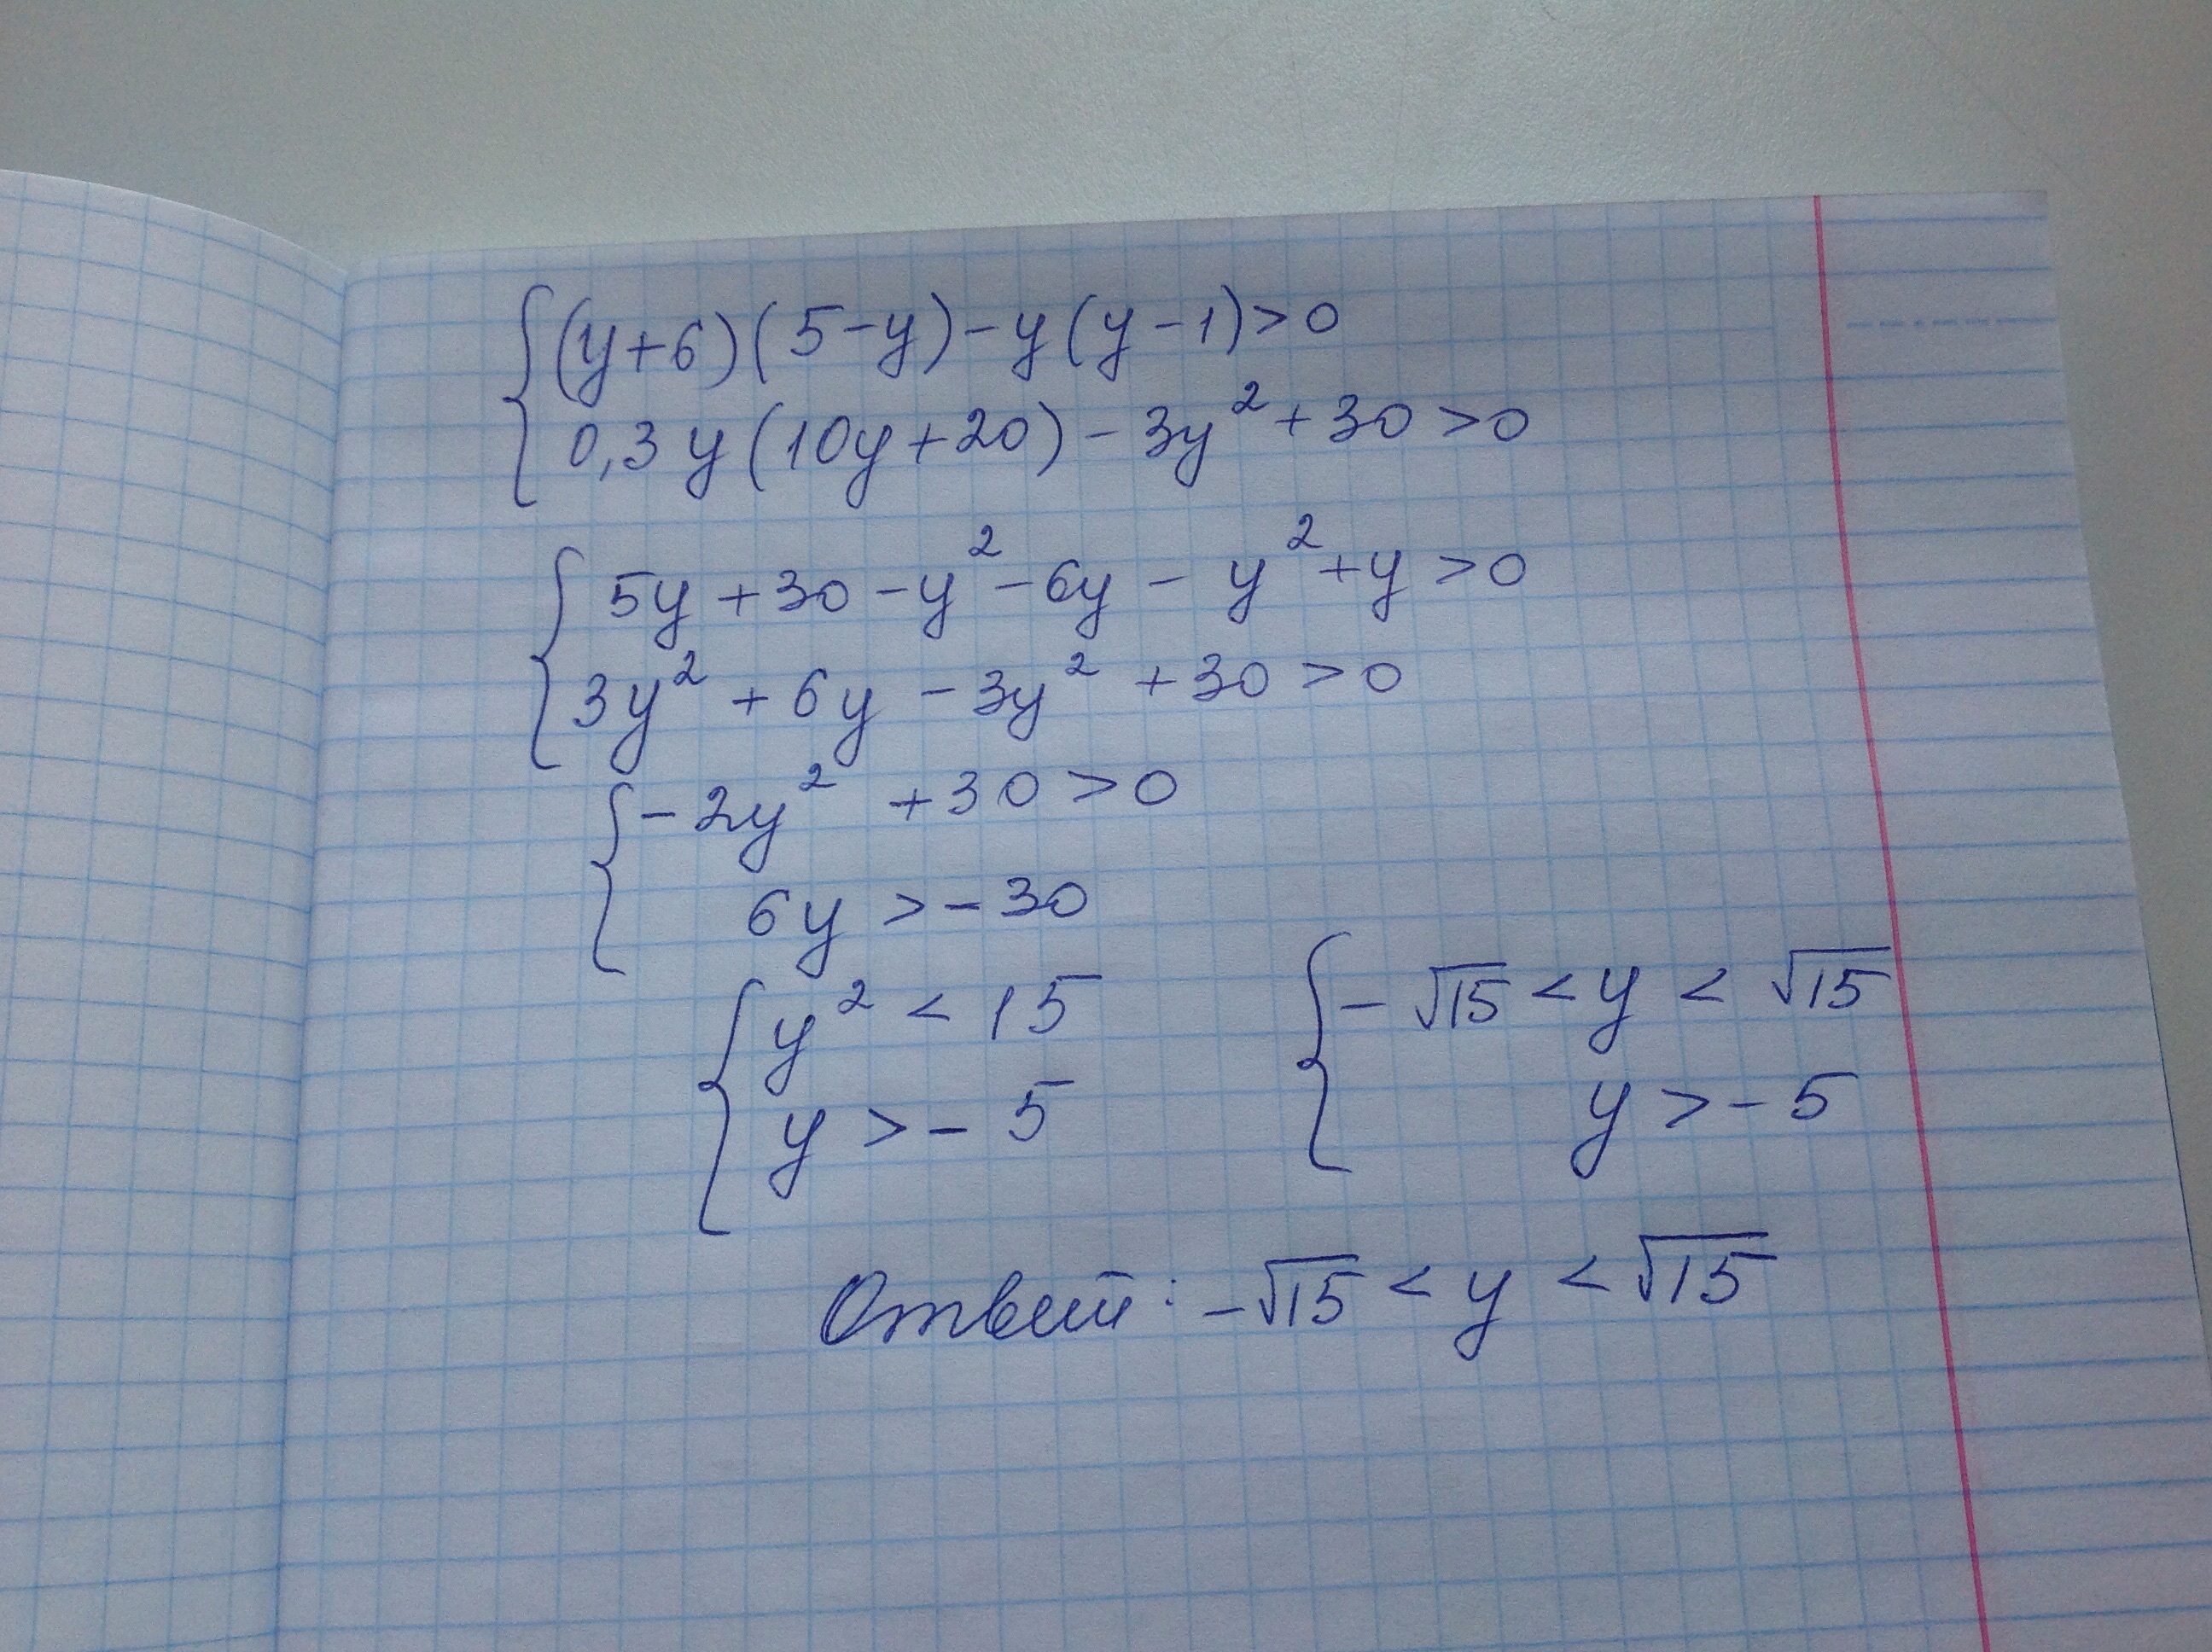 { (y+6)(5-y)-y(y-1)>0
0,3y(10y+20)-3y²+30>0
{ 5y+30-y²-6y-y²+y>0
3y²+6y-3y²+30>0
{ -2y²+30>0
6y>-30
{ y²<15
y>-5
{ -√15<y<√15
y>-5
Ответ: -√15<y<√15